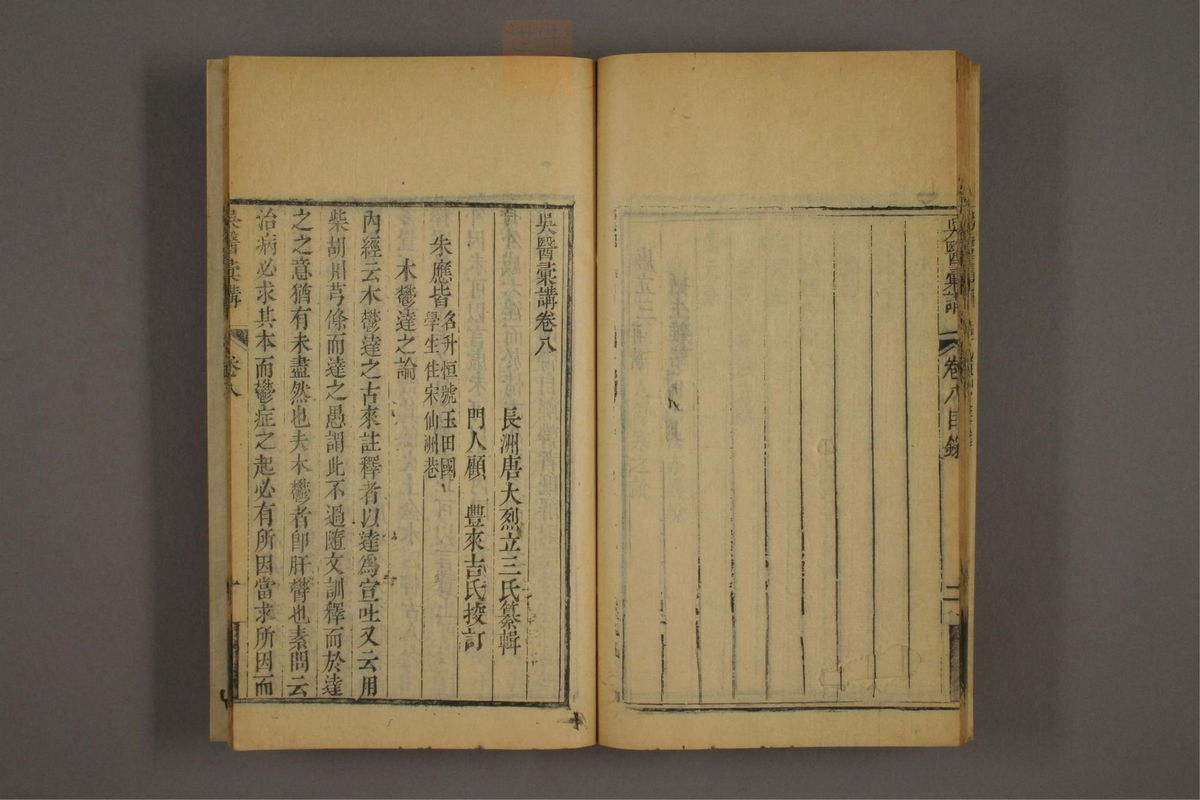 吳醫彚講
卷八目錄
二
吳醫彚講卷八
長洲唐大烈立三氏纂輯
門人顧　豐來吉氏挍訂
朱應皆
名升恒號玉田國
學生住宋仙洲巷
木鬱達之論
內經云木鬱達之古來註釋者以達爲宣吐又云用
柴胡川芎條而達之愚謂此不過隨文訓釋而於達
之之意猶有未盡然也夫木鬱者卽肝鬱也素問云
治病必求其本而鬱症之起必有所因當求所因而
吳醫彚講
卷八